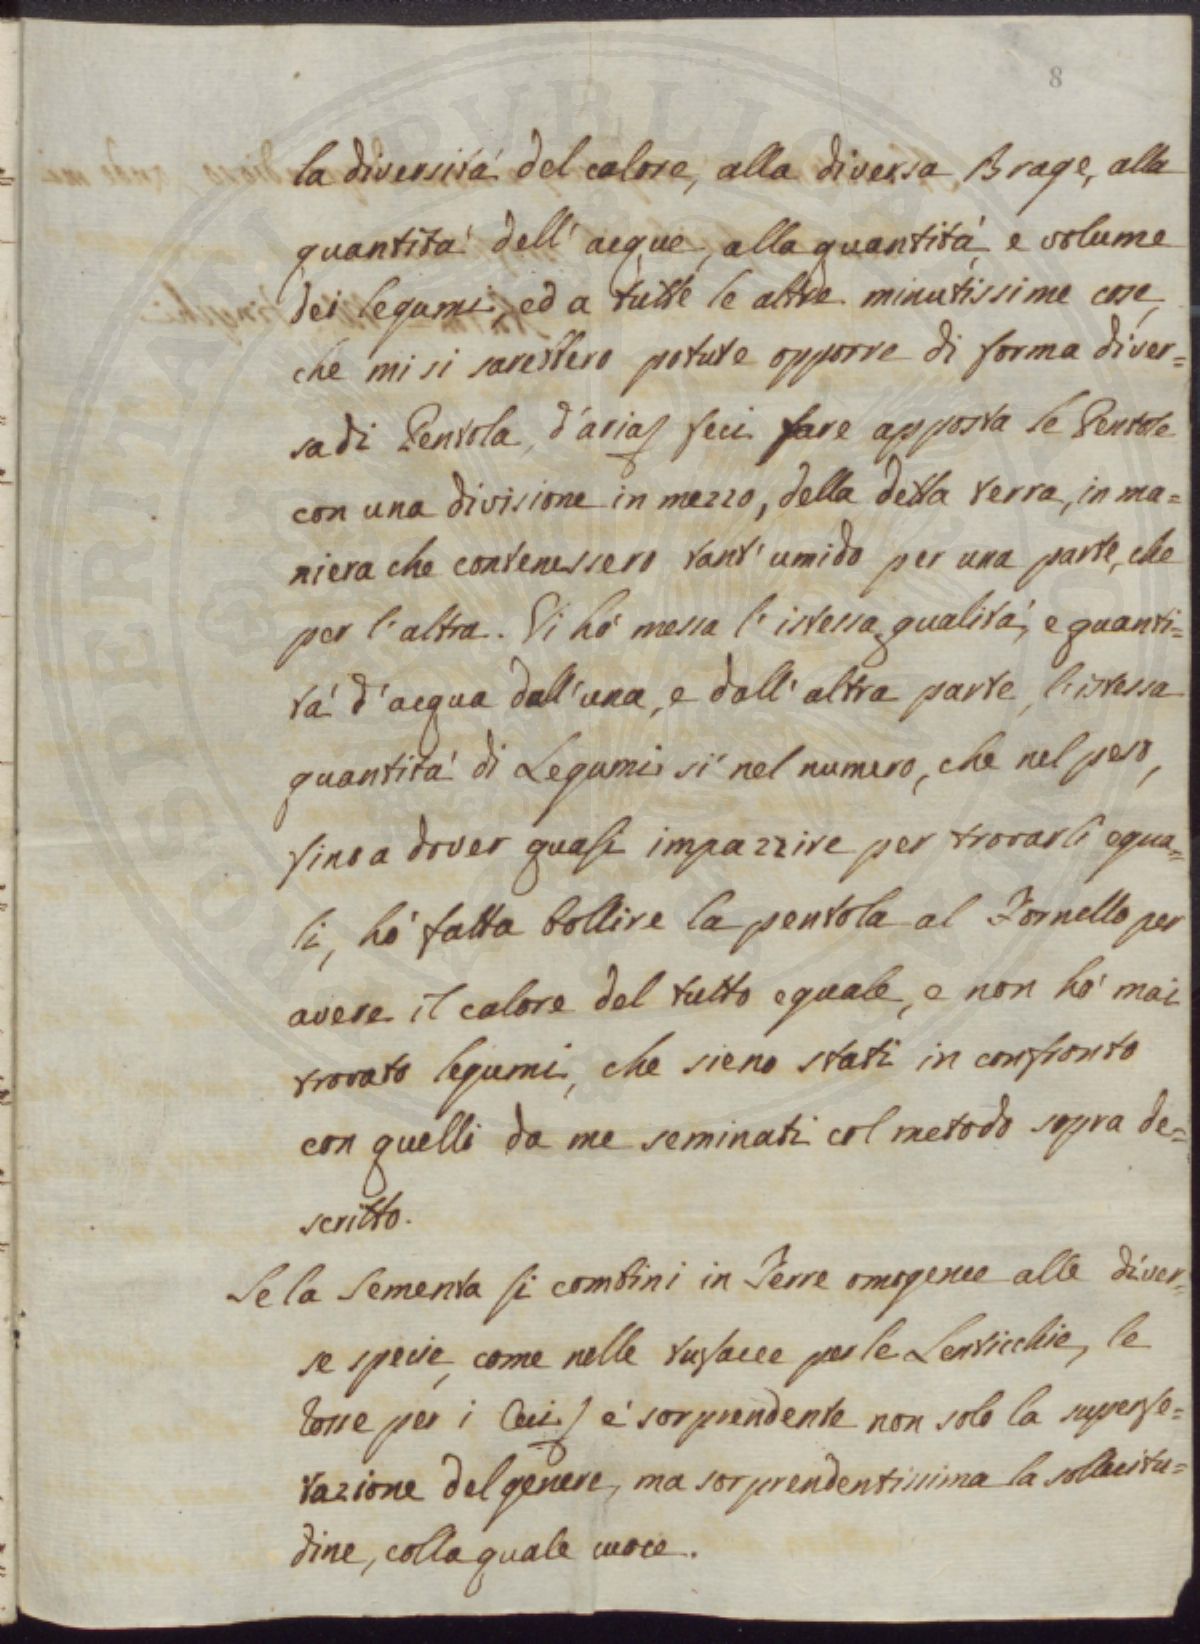 8
la diversitá del calore, alla diversa Brage, alla
quantitá dell' acque, alla quantitá, e volume
dei legumi, ed a tutte le altre minutissime cose,
che mi si sarebbero potute opporre di forma diver=
sa di Pentola, d'aria, feci fare apposta le Pentole
con una divisione in mezzo, della detta terra, in ma=
niera che contenessero tant' umido per una parte, che
per l'altra. Vi hó messa l'istessa qualitá, e quanti=
tá d'acqua dall'una, e dall'altra parte, l'istessa
quantitá di Legumi sí nel numero, che nel peso,
fino a dover quasi impazzire per trovarli equa=
li, hó fatta bollire la pentola al Fornello per
avere il calore del tutto equale, e non hó mai
trovato legumi, che sieno stati in confronto
con quelli da me seminati col metodo sopra de=
scritto.
Se la Sementa si combini in Terre omogenee alle diver=
se specie, come nelle tufacee per le Lenticchie, le
rosse per i Ceci, é sorprendente non solo la superfe=
tazione del genere, ma sorprendentissima la sollecitu=
dine, colla quale cuoce.
PROSPERITATI PUBLICAE